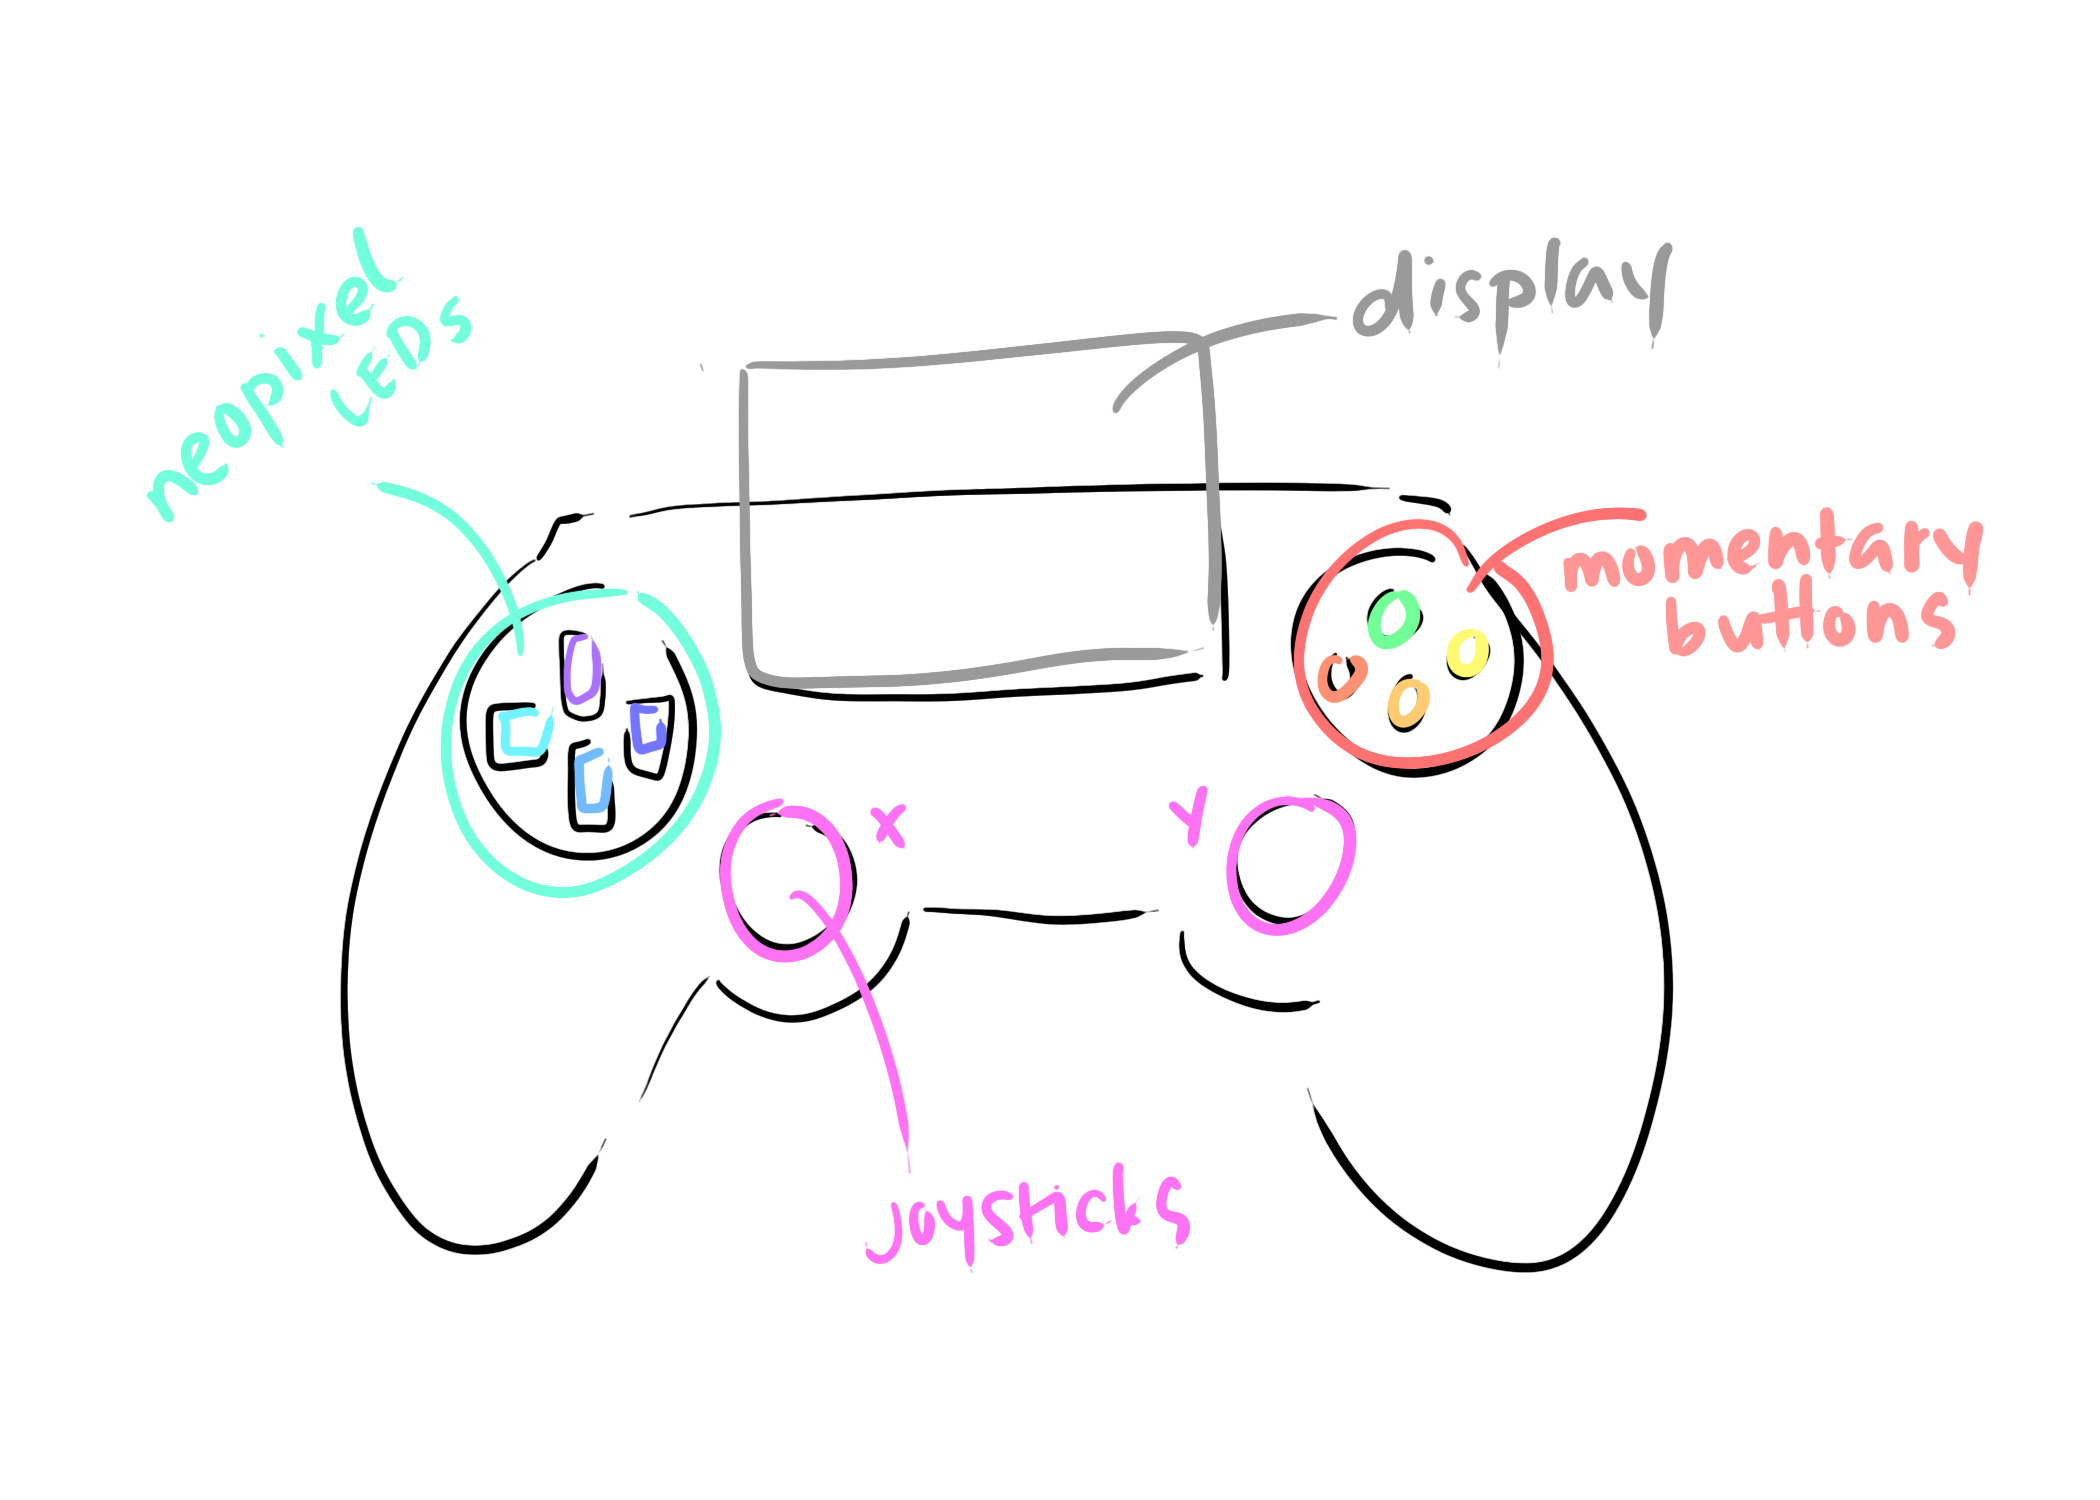 neopixel
LEDs
display
momentary
buttons
X
Y
joysticks